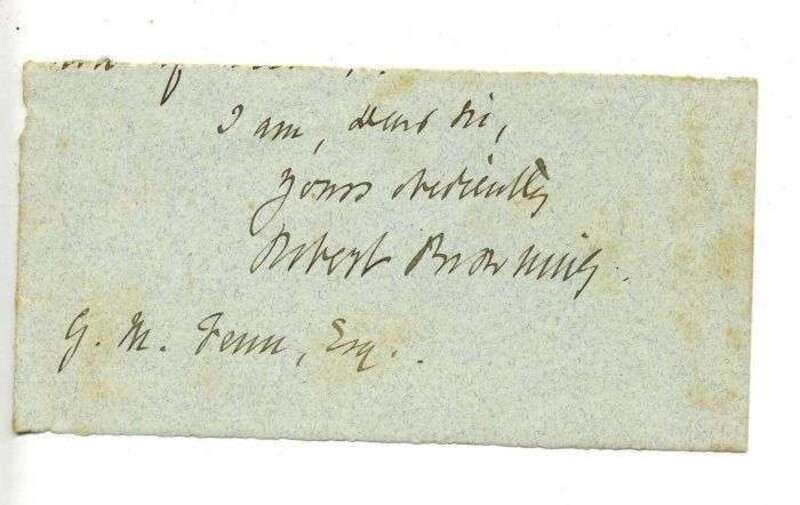 I am, Dear Sir,
Yours obediently
Robert Browning.
G. M. Fenn, Esq..